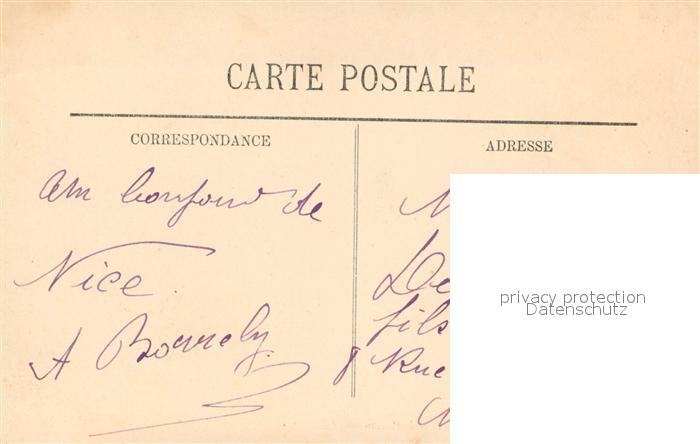 CARTE POSTALE
CORRESPONDANCE
Um bonjour de
Nice.
A Bourrely
ADRESSE
M
De
fils
8 Rue
privacy protection
Datenschutz